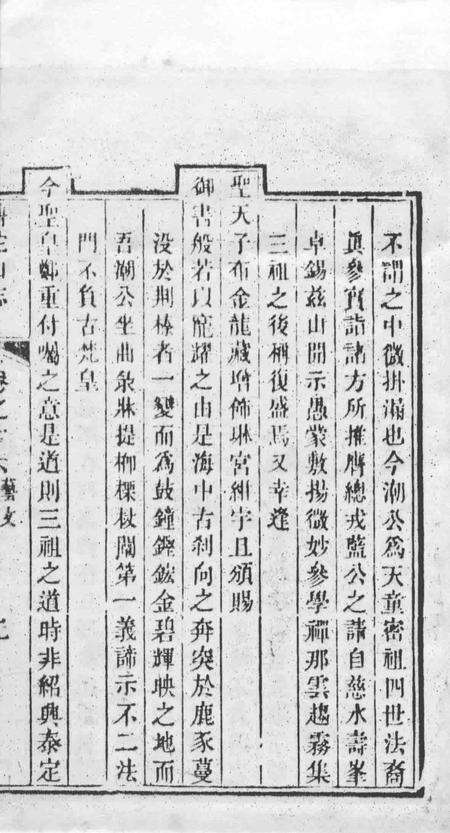 不謂之中微掛漏也今潮公為天童密祖四世法裔
眞參實詣諸方所推膺總戎藍公之請自慈水壽峯
卓錫茲山開示愚蒙敷揚微妙參學禪那雲趨霧集
三祖之後稱復盛焉又幸逢
聖天子布金龍藏增飾琳宮紺宇且頒賜
御書般若以寵耀之由是海中古刹向之奔突於鹿豕蔓
没於荆榛者一變而為鼓鐘鏗鋐金碧輝映之地而
吾潮公坐曲彔牀提楖𣗖杖闡第一義諦示不二法
門不負古梵皇
今聖皇鄭重付囑之意是道則三祖之道時非紹興泰定
卷之十六 藝文